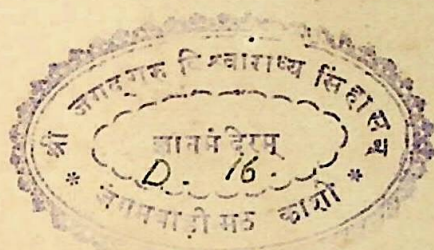 श्री जगद्गुरु विश्वाराध्य सिंहासन
ज्ञानमंदिरम्
D. 16.
* जंगमवाडी मठ काशी *